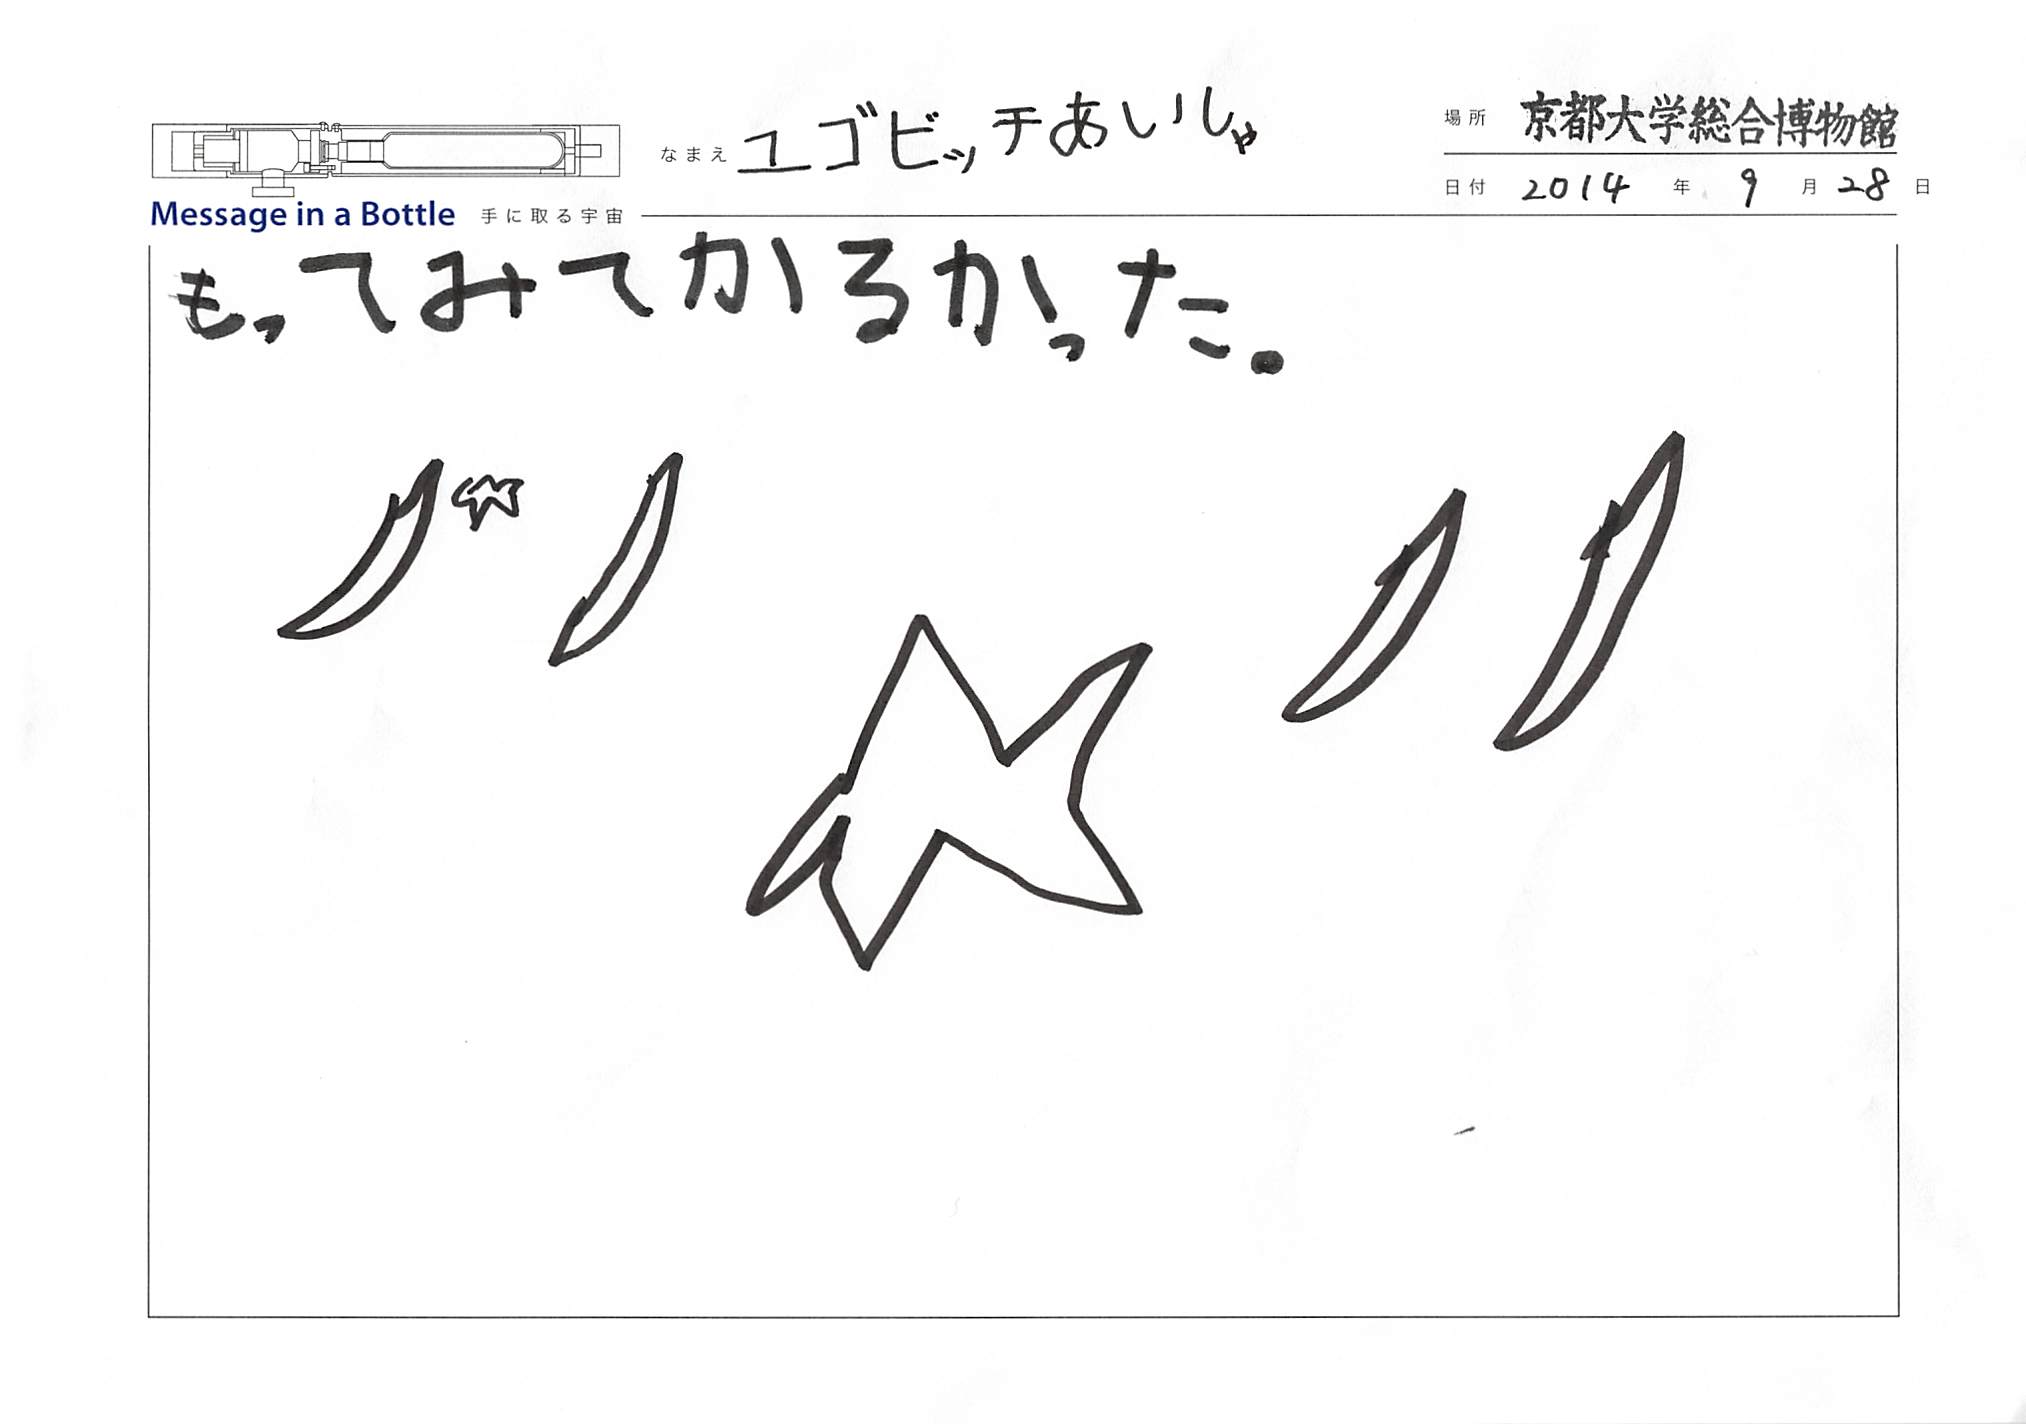 なまえ ユゴビッチあいしゃ
場所 京都大学総合博物館
日付 2014 年 9 月 28 日
Message in a Bottle 手に取る宇宙
もってみてかるかった。